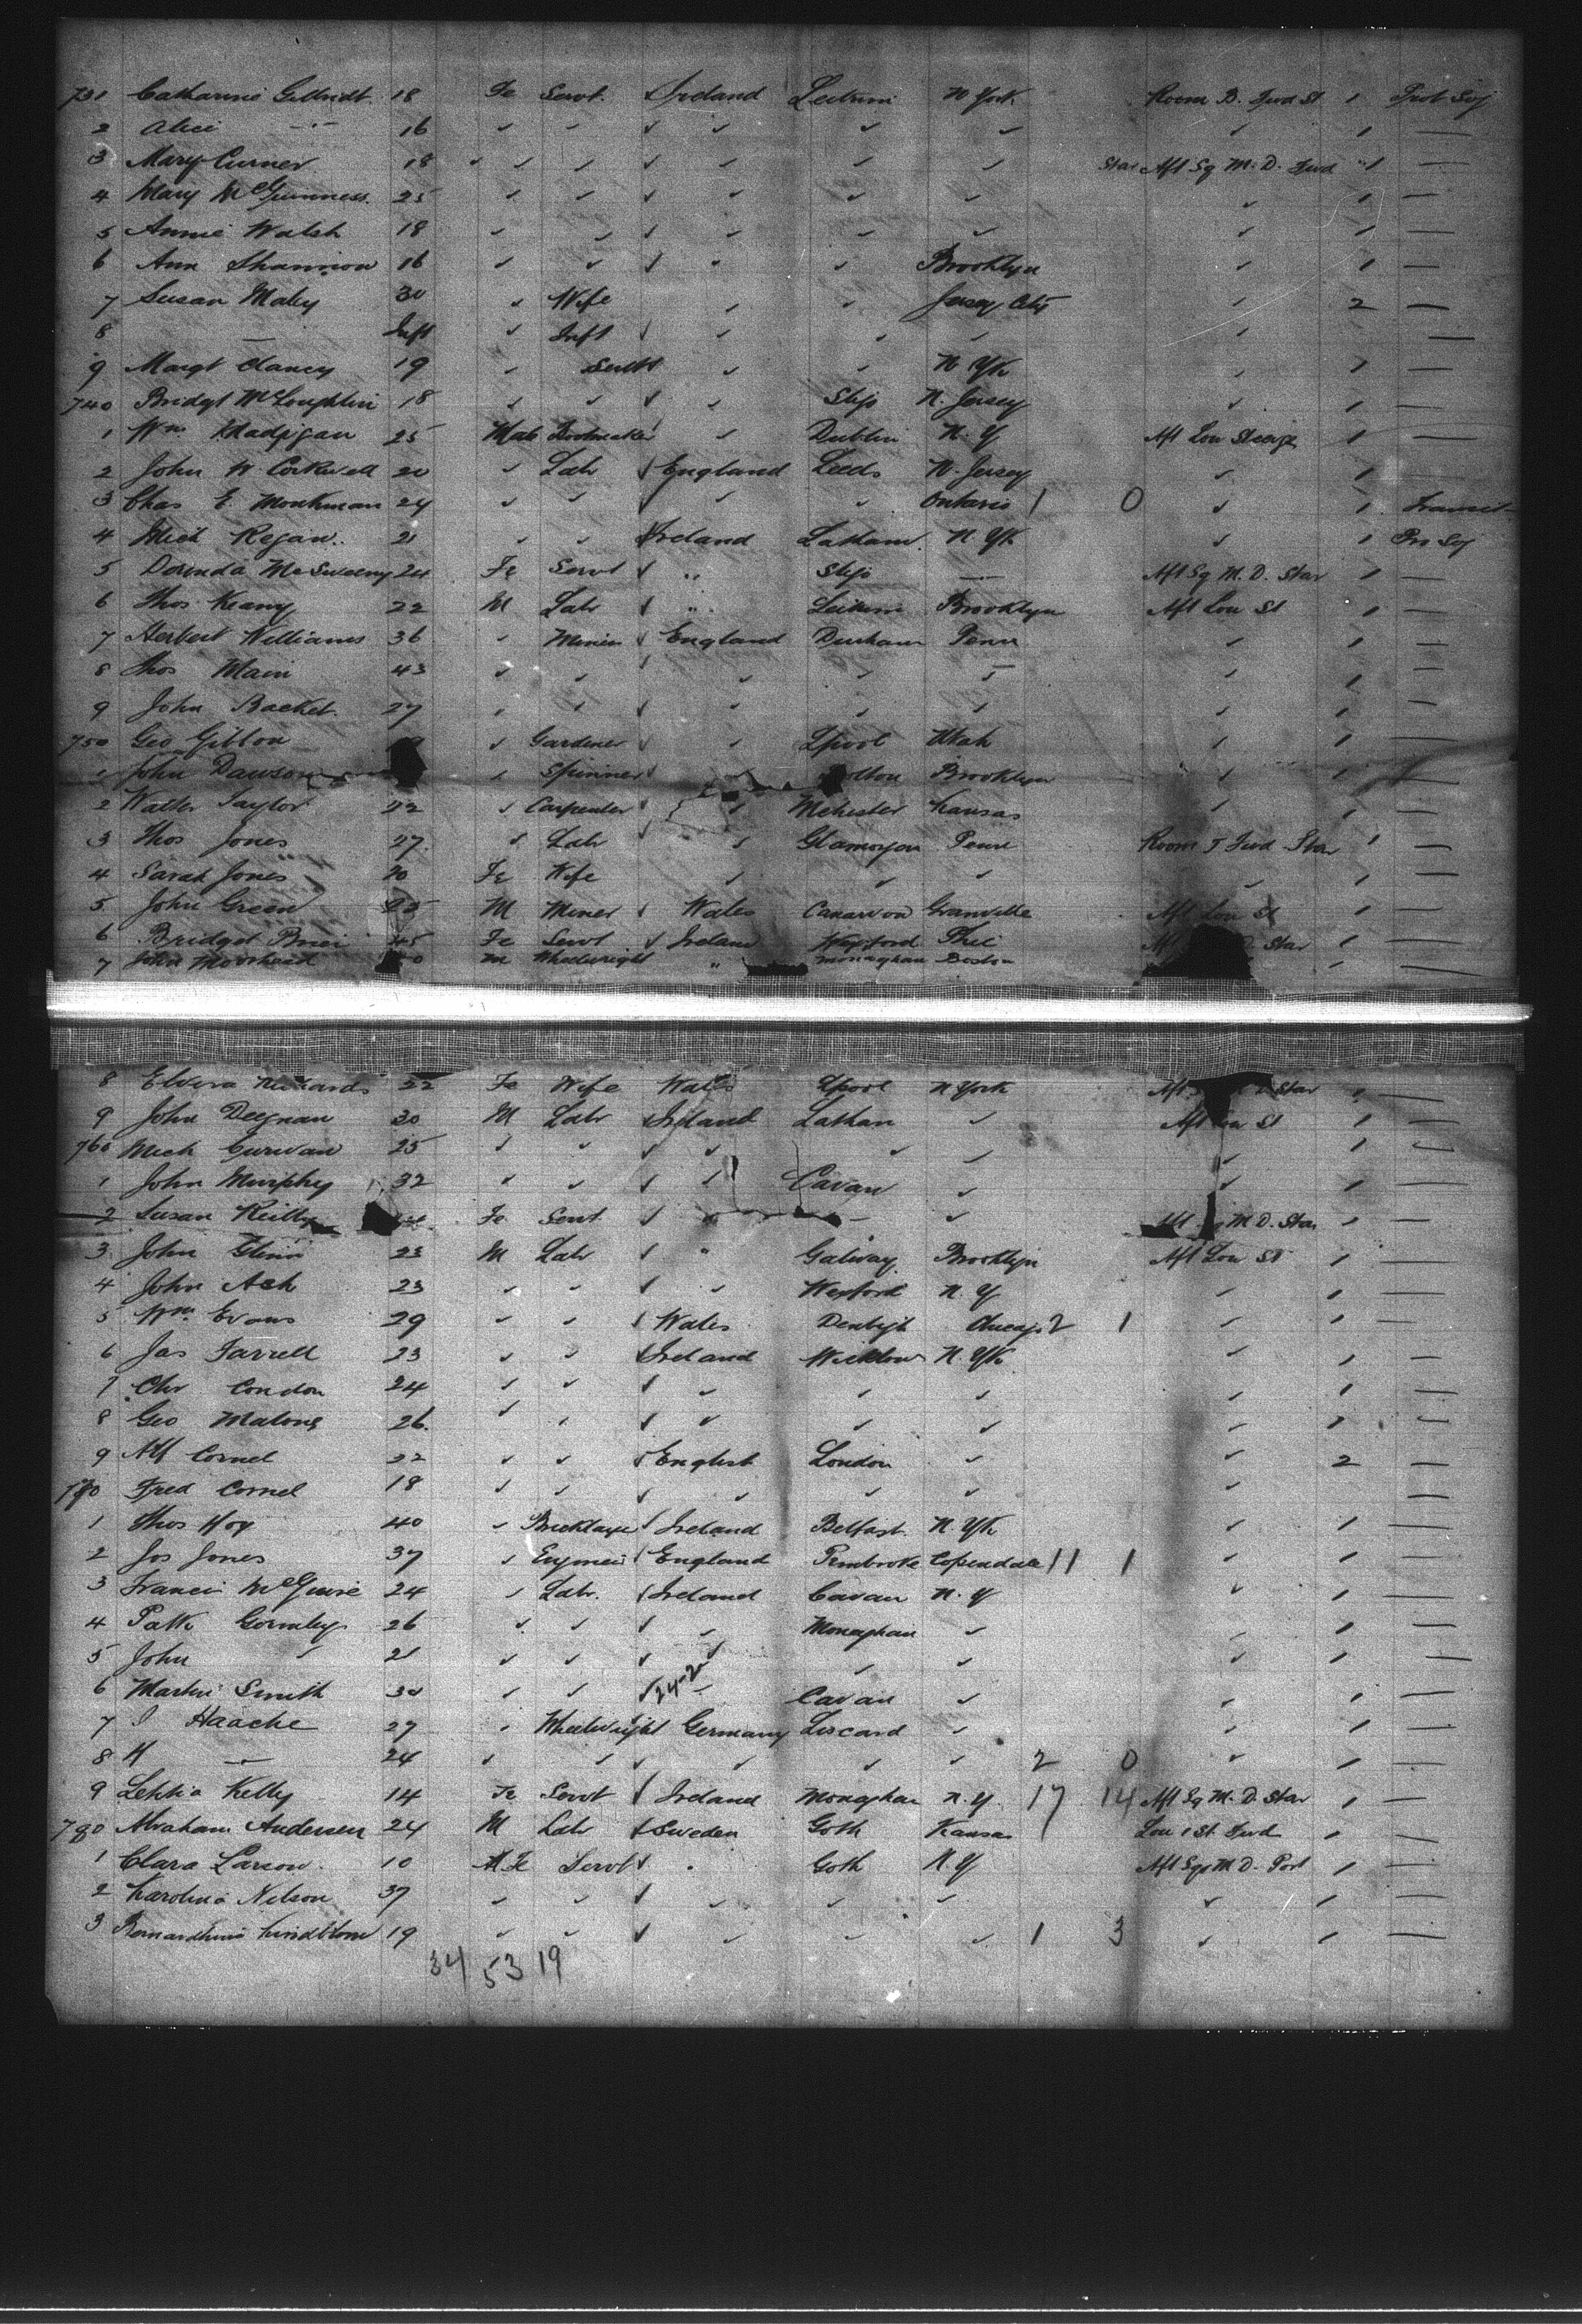 731 Catharine 18 Fe Servt. Ireland Leitrim N York Room B. Fwd St 1 Prot Soj
2 Alice — 16 ✓ ✓ ✓ ✓ ✓ ✓ ✓ 1 —
3 Mary Curner 18 ✓ ✓ ✓ ✓ ✓ ✓ ✓ Star Aft Sq M. D. Fwd 1 —
4 Mary McGuinness 25 ✓ ✓ ✓ ✓ ✓ ✓ ✓ 1 —
5 Annie Walsh 18 ✓ ✓ ✓ ✓ ✓ ✓ ✓ 1 —
6 Ann Shannon 16 ✓ ✓ ✓ " ✓ Brooklyn ✓ 1 —
7 Susan Maley 30 ✓ Wife ✓ ✓ Jersey City ✓ 2 —
8 — Inft ✓ Inft ✓ ✓ ✓ ✓ ✓ —
9 Margt Clancy 19 ✓ Servt ✓ ✓ ✓ N Yk ✓ 1 —
740 Bridgt McLoughlin 18 ✓ ✓ ✓ ✓ Sligo N. Jersey ✓ 1 —
1 Wm Madigan 25 Male Bootmaker ✓ Dublin N. Y Aft Low Steerge 1 —
2 John W. Corkwell 20 ✓ Labr ✓ England Leeds N. Jersey ✓ 1 —
3 Chas E. Monkman 24 ✓ ✓ ✓ ✓ ✓ Ontario 1 0 ✓ 1 Transit
4 Mich Regan 21 ✓ ✓ Ireland N. Yk ✓ 1 Pro Soj
5 Dorinda McSweeny 24 Fe Servt ✓ " Sligo — Aft Sq M. D. Star 1 —
6 Thos Keany 22 M Labr ✓ " Leitrim Brooklyn Aft Low St 1 —
7 Herbert Williams 36 ✓ Miner ✓ England Durham Penn ✓ 1 —
8 Thos Main 43 ✓ ✓ ✓ ✓ ✓ ✓ ✓ 1 —
9 John Racket 27 ✓ ✓ ✓ ✓ ✓ ✓ ✓ 1 —
750 Geo Gibbon ✓ Gardener ✓ ✓ Lpool Utah ✓ 1 —
1 John Dawson ✓ Spinner ✓ ✓ olton Brooklyn ✓ 1 —
2 Walter Taylor 22 ✓ Carpenter ✓ ✓ Mchester Kansas ✓ 1 —
3 Thos Jones 27 ✓ Labr ✓ ✓ Glamorgan Penn Room J Fwd Star 1 —
4 Sarah Jones 20 Fe Wife ✓ ✓ ✓ ✓ 1 —
5 John Green 25 M Miner ✓ Wales Canarvon Granville Aft Low St 1 —
6 Bridget 45 Fe Servt ✓ Ireland Wexford Phil Aft D. Star 1 —
7 John Moorhead M Wheelwright " Monaghan Boston 1 —
8 Elvira Richards 22 Fe Wife Wales Lpool N York Aft D Star 1 —
9 John Deegnan 30 M Labr ✓ Ireland ✓ Aft Low St 1 —
760 Mich 25 ✓ ✓ ✓ ✓ ✓ ✓ ✓ 1 —
1 John Murphy 32 ✓ ✓ ✓ ✓ Cavan ✓ ✓ 1 —
2 Susan Reilly Fe Servt ✓ — ✓ Aft Sq M D. Star 1 —
3 John Glinn 23 M Labr ✓ " Galway Brooklyn Aft Low St 1 —
4 John Ash 23 ✓ ✓ ✓ ✓ Wexford N. Y ✓ 1 —
5 Wm. Evans 29 ✓ ✓ ✓ Wales Denbigh Chicago 2 1 ✓ 1 —
6 Jas Farrell 23 ✓ ✓ ✓ Ireland Wicklow N. Yk ✓ 1 —
7 Chr Condon 24 ✓ ✓ ✓ ✓ ✓ ✓ ✓ 1 —
8 Geo Malone 26 ✓ ✓ ✓ ✓ ✓ ✓ ✓ 1 —
9 Alf Cornel 22 ✓ ✓ ✓ English London ✓ ✓ 2 —
770 Fred Cornel 18 ✓ ✓ ✓ ✓ ✓ ✓ ✓ —
1 Thos Hoy 40 ✓ Bricklayer ✓ Ireland Belfast N. Yk ✓ 1 —
2 Jos Jones 37 ✓ Engineer ✓ England Pembroke 11 1 ✓ 1 —
3 Francis McGuire 24 ✓ Labr. ✓ Ireland Cavan N. Y ✓ 1 —
4 Patk Gormley 26 ✓ ✓ ✓ ✓ Monaghan ✓ ✓ 1 —
5 John ✓ 21 ✓ ✓ ✓ ✓ ✓ ✓ ✓ 1 —
6 Martin Smith 30 ✓ ✓ ✓ 24-2 Cavan ✓ ✓ 1 —
7 J Haacke 27 ✓ Wheelwright Germany Liscard ✓ ✓ 1 —
8 H — 24 ✓ ✓ ✓ ✓ ✓ ✓ 2 0 ✓ 1 —
9 Letitia Kelly 14 Fe Servt ✓ Ireland Monaghan N. Y 17 14 Aft Sq M. D. Star 1 —
780 Abraham Andersen 24 M Labr ✓ Sweden Goth Kansas Low 1 St Fwd 1 —
1 Clara Larson 10 Fe Servt ✓ " Goth N. Y Aft Sqr M D. Port 1 —
2 Karolina Nelson 37 ✓ ✓ ✓ ✓ ✓ ✓ ✓ 1 —
3 19 ✓ ✓ ✓ ✓ ✓ ✓ 1 3 ✓ 1 —
34 53 19